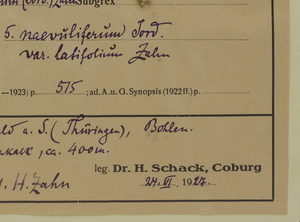 Subgrex
5. naevuliferum Jord.
var. latifolium Zahn
—1923) p. 515 ; ad. A. u. G. Synopsis (1922 ff.) p.
a. S. (Thüringen), Bohlen.
, ca. 400m.
leg. Dr. H. Schack, Coburg
H. Zahn 24. VI. 1927.